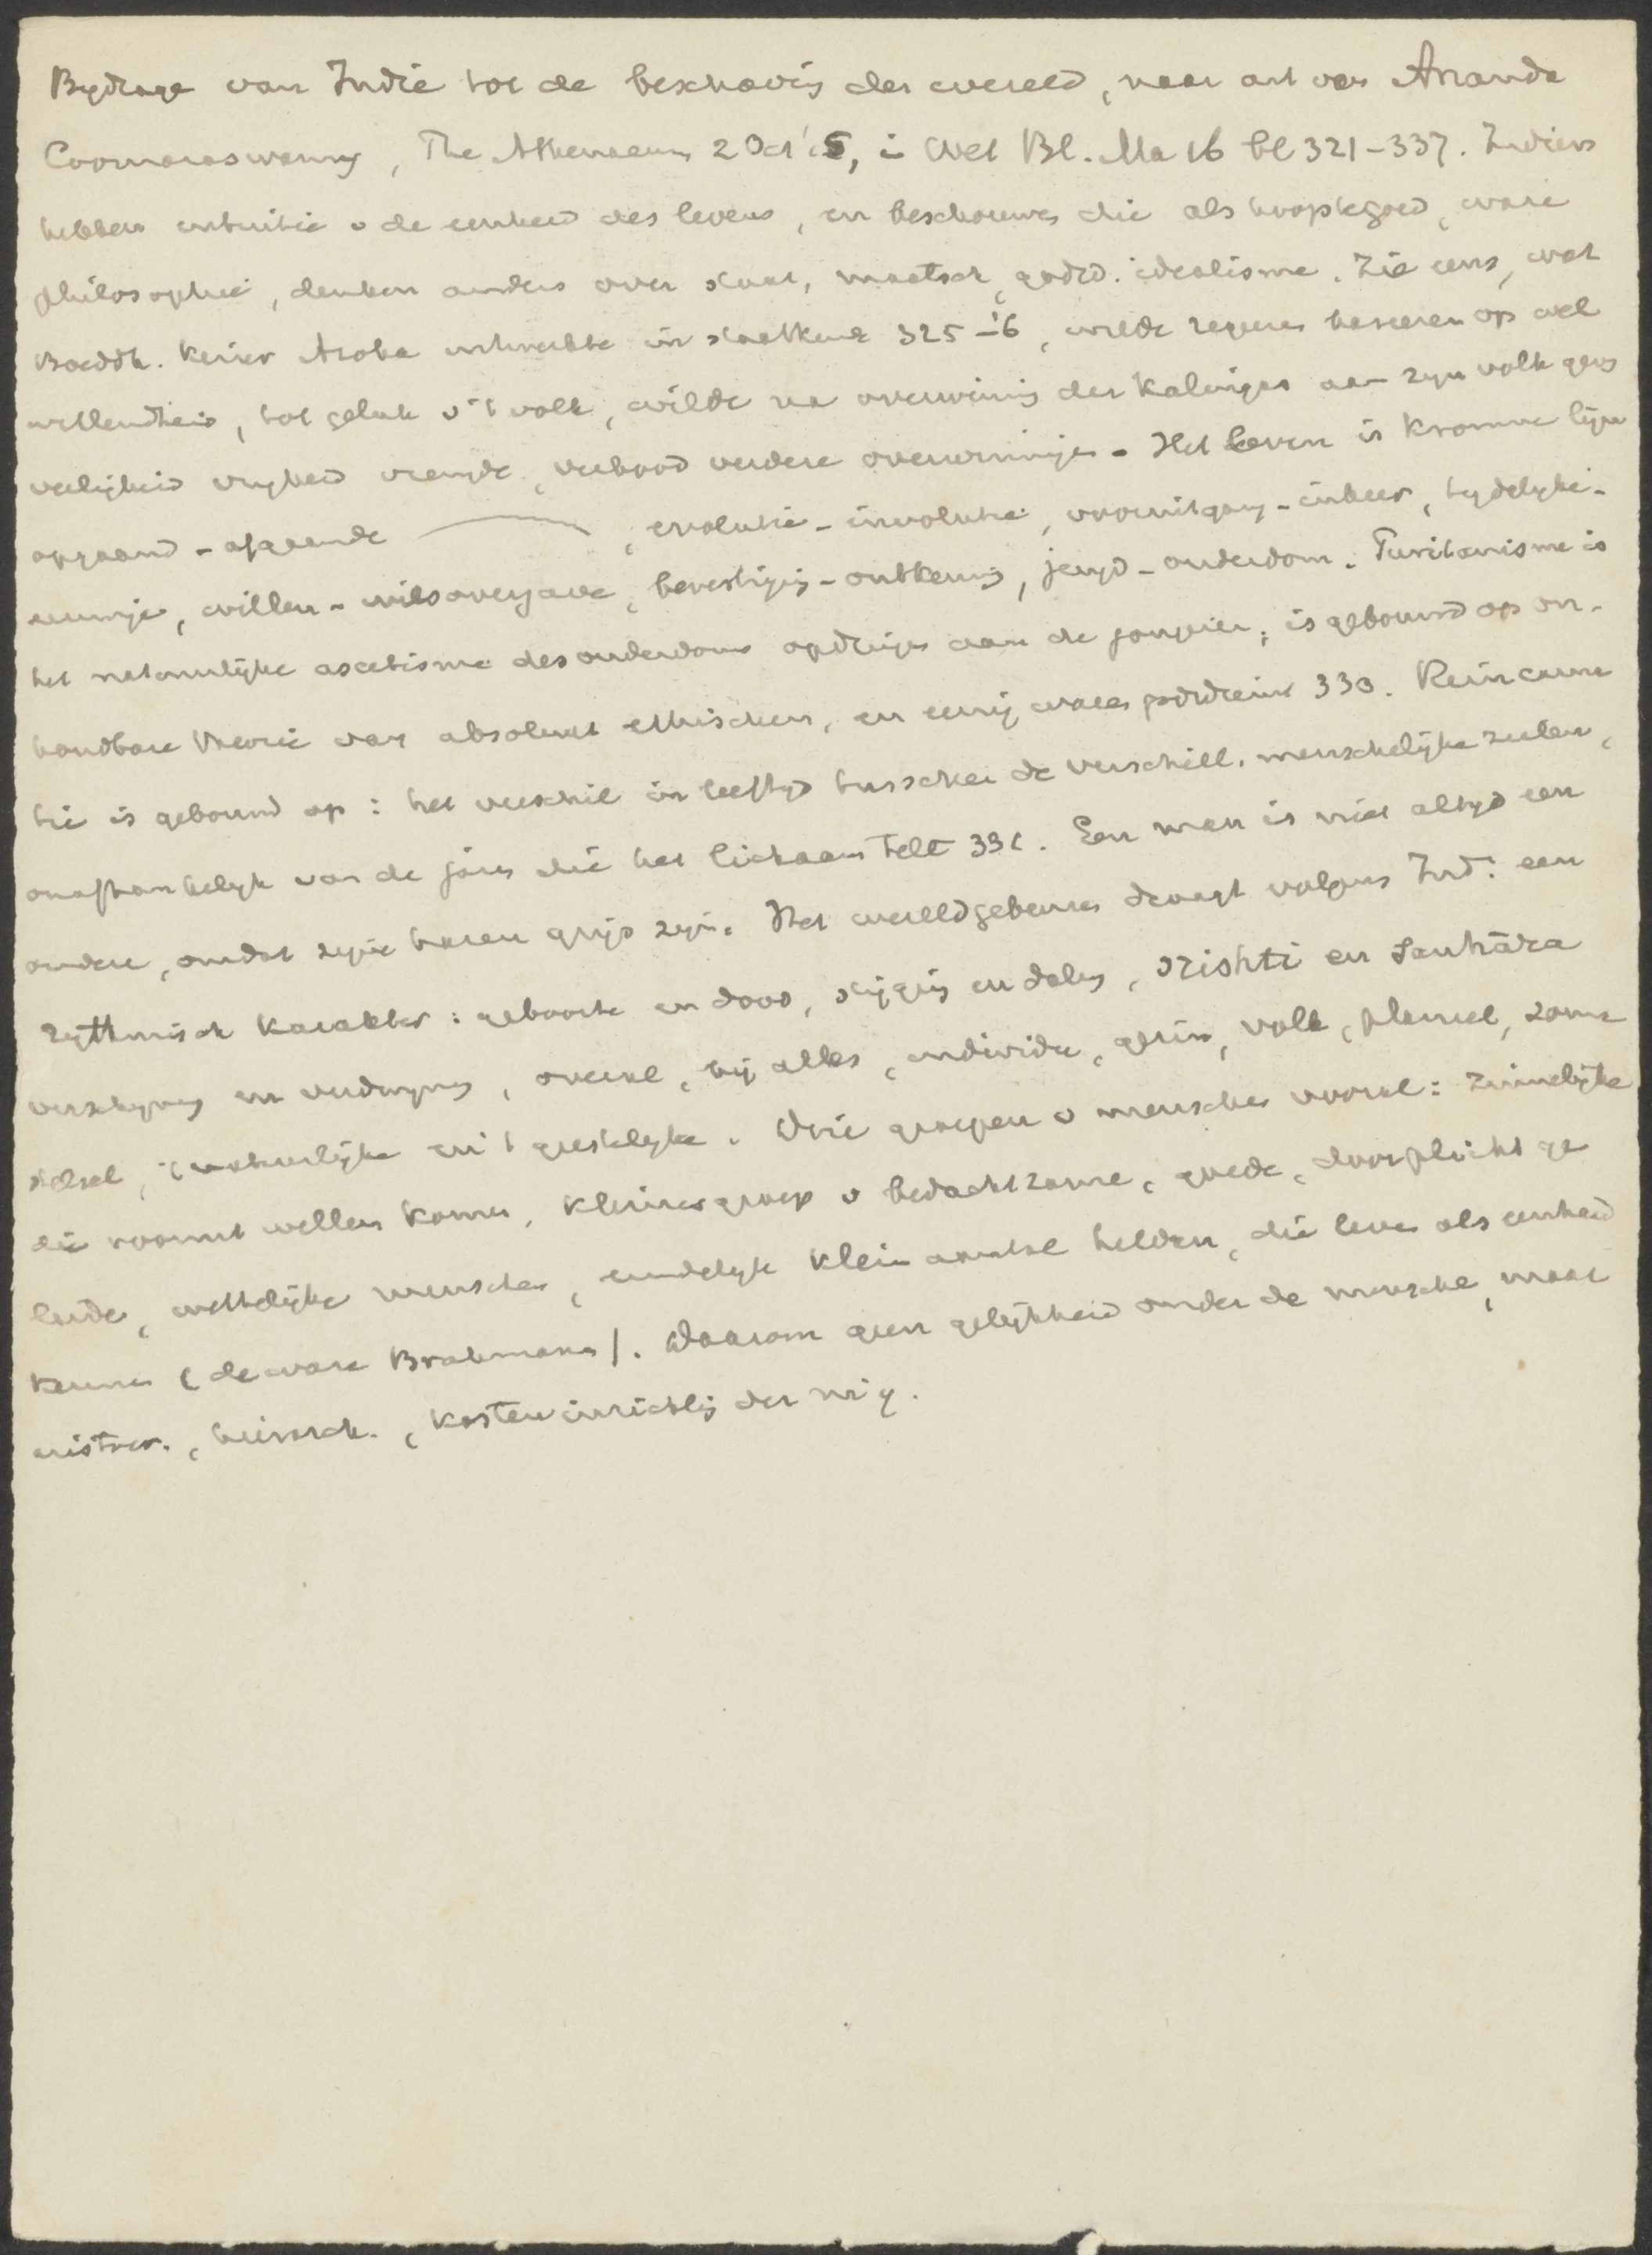 Bydrage van Indië tot de beschavig der wereld, naar art van Ananda
Coomaraswamy, The Athenaeum 2 Oct '15, in Wet Bl. Ma 16 bl 321-337. Indiers
hebben intuitie v de eenheid des levens, en beschouwen die als hoogste goed, ware
philosophie, denken anders over staat, maatsch, godsd. idealisme. Zie eens, wat
Boeddh. Keizer Asoka uitwerkte in staatkunde 325-'6, wilde regeeren baseeren op wel
willendheid, tot geluk v 't volk, wilde na overwinnig der Kalingas aan zyn volk gev
veiligheid vryheid vreugde, verbood verdere overwinninge. Het leven is kromme lijn
opgaand - afgaande , evolutie - involutie, vooruitgang - inkeer, tydelyke -
eeuwige, willen - wilsovergave, bevestigig - ontkennig, jeugd - ouderdom. Puritanisme is
het natuurlijke ascetisme des ouderdoms opdringen aan de jongeren; is gebouwd op on-
houdbare theorie van absoluut ethischen, en eenig ware godsdienst 330. Reincarna
tie is gebouwd op: het verschil in leeftyd tusschen de verschill. menschelijke zielen,
onafhankelyk van de jaren die het lichaam telt 331. Een man is niet altyd een
oudere, omdat zyne haren grijs zyn. Het wereldgebeuren draagt volgens Ind: een
rythmisch karakter: geboorte en dood, stijgig en dalig, srishti en sanhāra
verschyning en verdwyning, overal, bij alles, individu, gezin, volk, planeet, zonne
stelsel, 't natuurlijke en 't geestelyke. Drie groepen v menschen vooral: zinnelijke
die vooruit willen komen, kleinere groep v bedachtzame, goede, door plicht ge
leide, wettelijke menschen, eindelyk klein aantal helden, die leven als eenheid
kennen (de ware Brahmanen). Daarom geen gelijkheid onder de mensche, maar
aristocr., hierarch., kasten inrichtig der mij.